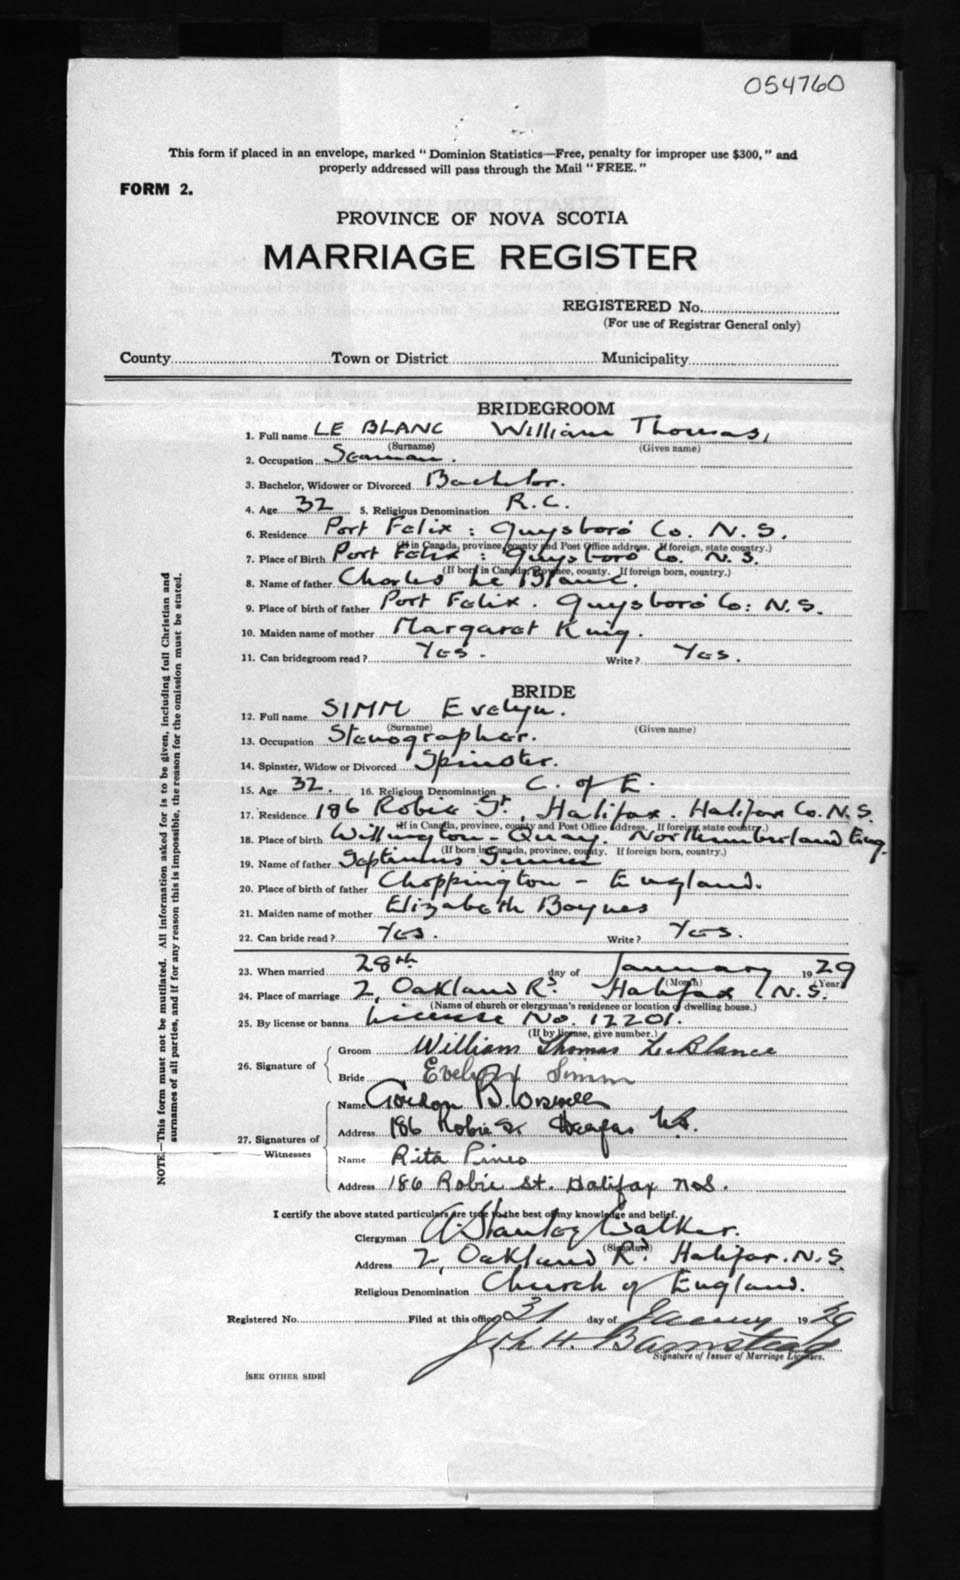 054760
This form if placed in an envelope, marked "Dominion Statistics—Free, penalty for improper use $300," and
properly addressed will pass through the Mail "FREE."
FORM 2.
PROVINCE OF NOVA SCOTIA
MARRIAGE REGISTER
REGISTERED No.
(For use of Registrar General only)
County Town or District Municipality
BRIDEGROOM
1. Full name LE BLANC William Thomas,
(Surname) (Given name)
2. Occupation Seaman.
3. Bachelor, Widower or Divorced Bachelor.
4. Age 32 5. Religious Denomination R.C.
6. Residence Port Felix : Guysboro Co. N.S.
(If in Canada, province, county and Post Office address. If foreign, state country.)
7. Place of Birth Port Felix : Guysboro Co N.S.
(If born in Canada, province, county. If foreign born, country.)
8. Name of father Charles Le Blanc.
9. Place of birth of father Port Felix. Guysboro Co: N.S.
10. Maiden name of mother Margaret King.
11. Can bridegroom read? Yes. Write? Yes.
BRIDE
12. Full name SIMM Evelyn.
(Surname) (Given name)
13. Occupation Stenographer.
14. Spinster, Widow or Divorced Spinster.
15. Age 32. 16. Religious Denomination C. of E.
17. Residence 186 Robie St, Halifax. Halifax Co. N.S.
(If in Canada, province, county and Post Office address. If foreign state country.)
18. Place of birth Quay. Northumberland Eng.
(If born in Canada, province, county. If foreign born, country.)
19. Name of father Septimus Simm
20. Place of birth of father Choppington - England.
21. Maiden name of mother Elizabeth Baynes
22. Can bride read? Yes. Write? Yes.
23. When married 28th day of January 1929
(Month) (Year)
24. Place of marriage 2, Oakland Rd. Halifax N.S.
(Name of church or clergyman's residence or location of dwelling house.)
25. By license or banns License No. 12201.
(If by license, give number.)
26. Signature of Groom William Thomas LeBlance
Bride Evelyn Simm
27. Signatures of Witnesses Name Gordon B.
Address 186 Robie St Halifax N.S.
Name Rita Pineo
Address 186 Robie St. Halifax N.S.
I certify the above stated particulars are true to the best of my knowledge and belief.
Clergyman A. Stanley Walker.
(Signature)
Address 2, Oakland Rd. Halifax. N.S.
Religious Denomination Church of England.
Registered No. Filed at this office 31 day of January 1929
Barnstead
Signature of Issuer of Marriage Licenses.
[SEE OTHER SIDE]
NOTE.—This form must not be mutilated. All information asked for is to be given, including full Christian and
surnames of all parties, and if for any reason this is impossible, the reason for the omission must be stated.